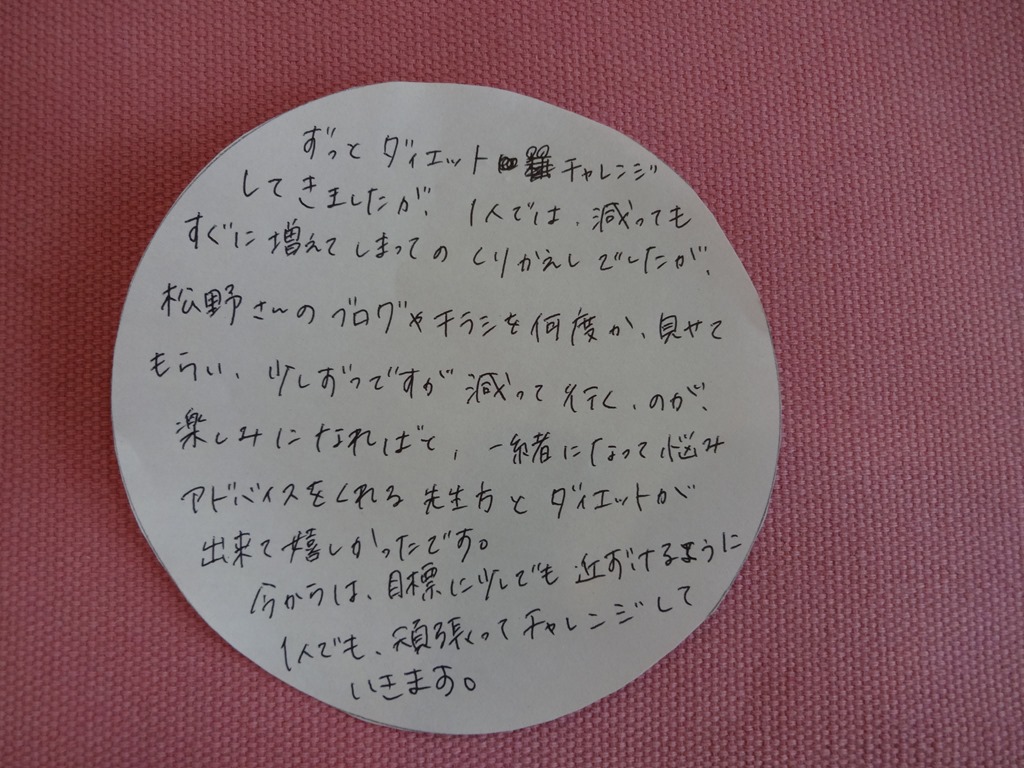 ずっと ダイエット チャレンジ
してきましたが、1人では、減っても
すぐに増えてしまっての くりかえしでしたが、
松野さんの ブログやチラシを何度か、見せて
もらい、少しずつですが 減って行く、のが、
楽しみになればと、一緒になって悩み
アドバイスをくれる先生方とダイエットが
出来て嬉しかったです。
今からは、目標に少しでも近ずけるように
1人でも、頑張ってチャレンジして
いきます。